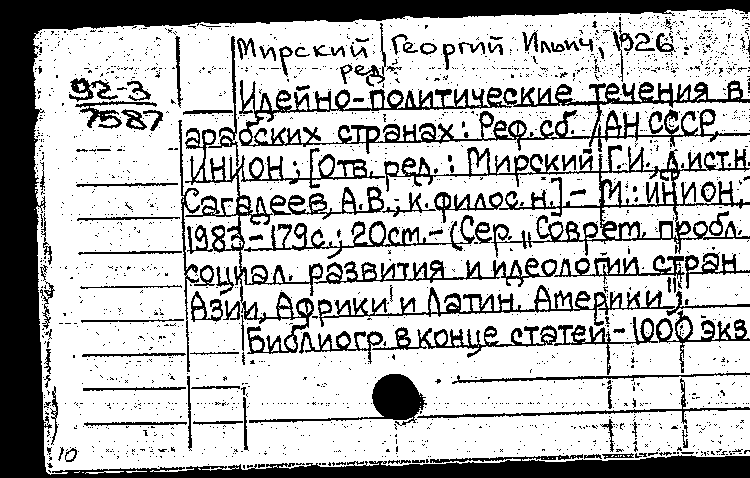 Мирский, Георгий Ильич, 1926
ред.
92-3
7587
Идейно-политические течения в
арабских странах: Реф. сб. / АН СССР,
ИНИОН; [Отв. ред.: Мирский Г.И., д.ист.н.
Сагадеев, А.В.; к.филос.н.].- М.: ИНИОН,
1983-179с.; 20см.-(Сер. „Соврет. пробл.
социал. развития и идеологии стран
Азии, Африки и Латин. Америки").
Библиогр. в конце статей - 1000 экз
10